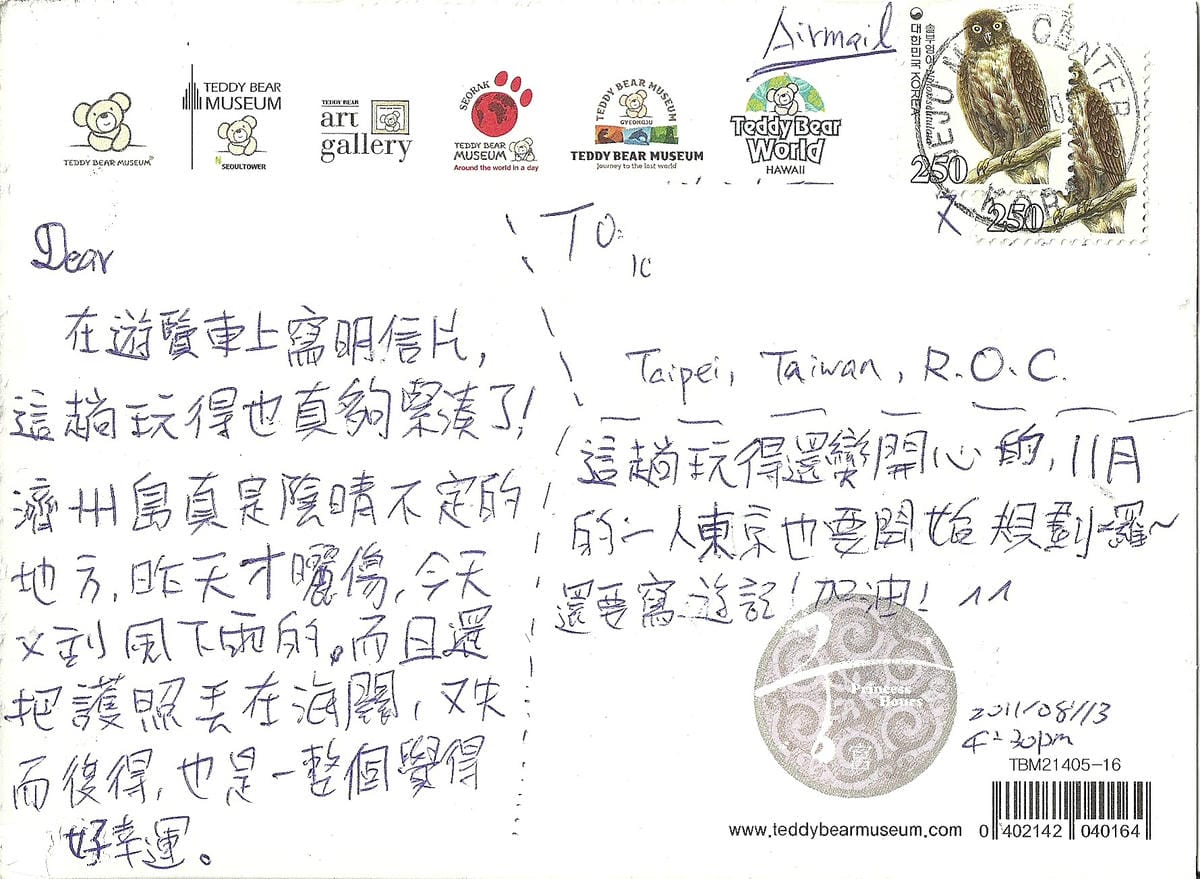 Airmail
TEDDY BEAR MUSEUM
TEDDY BEAR
MUSEUM
N SEOULTOWER
TEDDY BEAR
art
gallery
SEORAK
TEDDY BEAR
MUSEUM
Around the world in a day
TEDDY BEAR MUSEUM
GYEONGJU
TEDDY BEAR MUSEUM
Journey to the lost world
Teddy Bear
World
HAWAII
대한민국 KOREA
솔부엉이
250
250
JEJU M CENTER
KOREA
Dear
在遊覽車上寫明信片,
這趟玩得也真夠緊湊了!
濟州島真是陰晴不定的
地方,昨天才曬傷,今天
又刮風下雨的。而且還
把護照丟在海關,又失
而復得,也是一整個覺得
好幸運。
To:
Taipei, Taiwan, R.O.C.
這趟玩得還蠻開心的,11月
的一人東京也要開始規劃囉~
還要寫遊記!加油! ^^
Princess
Hours
宮
2011/08/13
4:30pm
TBM21405-16
www.teddybearmuseum.com
0 402142 040164